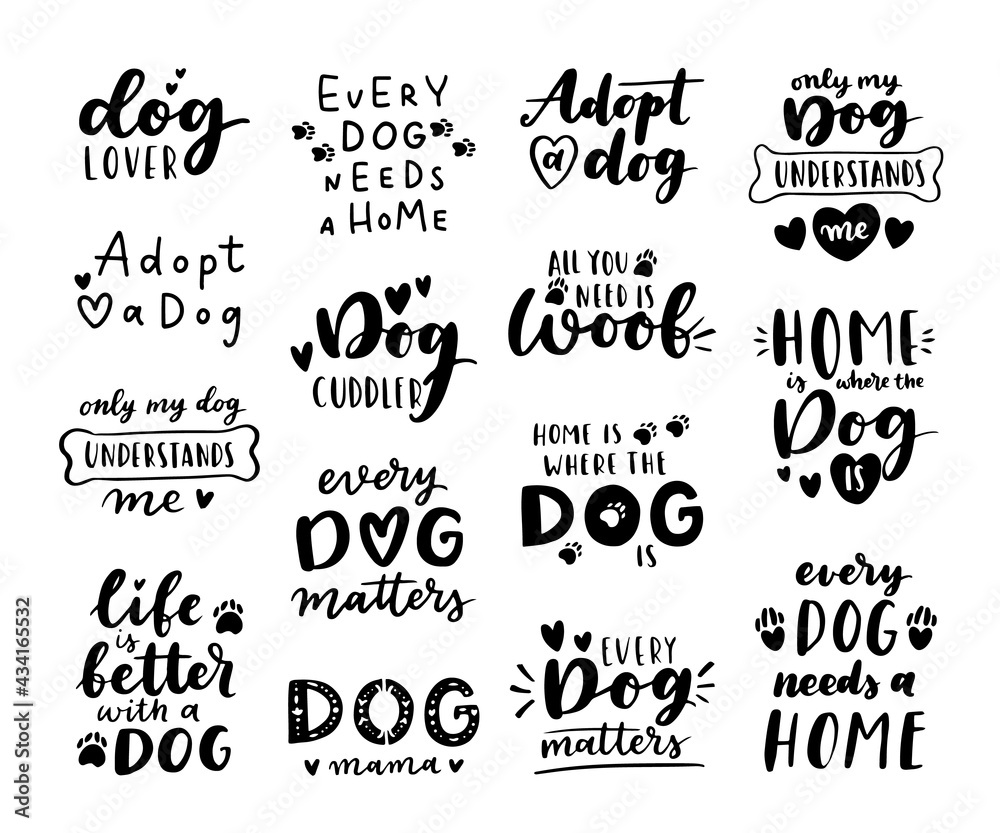 dog
LOVER
Adopt
a Dog
only my dog
UNDERSTANDS
me
life
is
better
with a
DOG
EVERY
DOG
NEEDS
A HOME
Dog
CUDDLER
every
DOG
matters
DOG
mama
Adopt
a dog
ALL YOU
NEED IS
Woof
HOME IS
WHERE THE
DOG
IS
EVERY
Dog
matters
only my
Dog
UNDERSTANDS
me
HOME
is where the
Dog
IS
every
DOG
needs a
HOME
Adobe Stock | #434165532